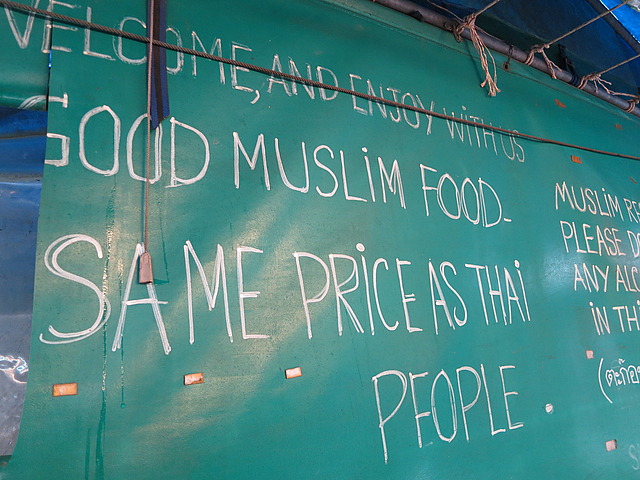 WELCOME, AND ENJOY WITH US
GOOD MUSLiM FOOD-
SAME PRiCE AS THAi
PEOPLE.
MUSLiM
PLEASE
ANY
iN
(ตะก้อ